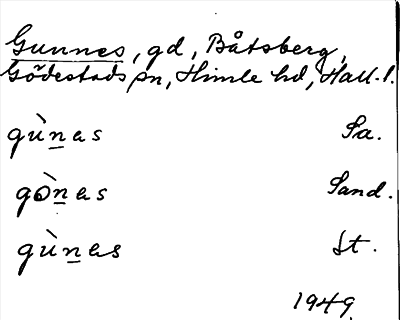 Gunnes, gd, Båtsberg,
Gödestads sn, Himle hd, Hall. l.
gùn̲as Sa.
gòn̲as Sand.
gùn̲as St.
1949.